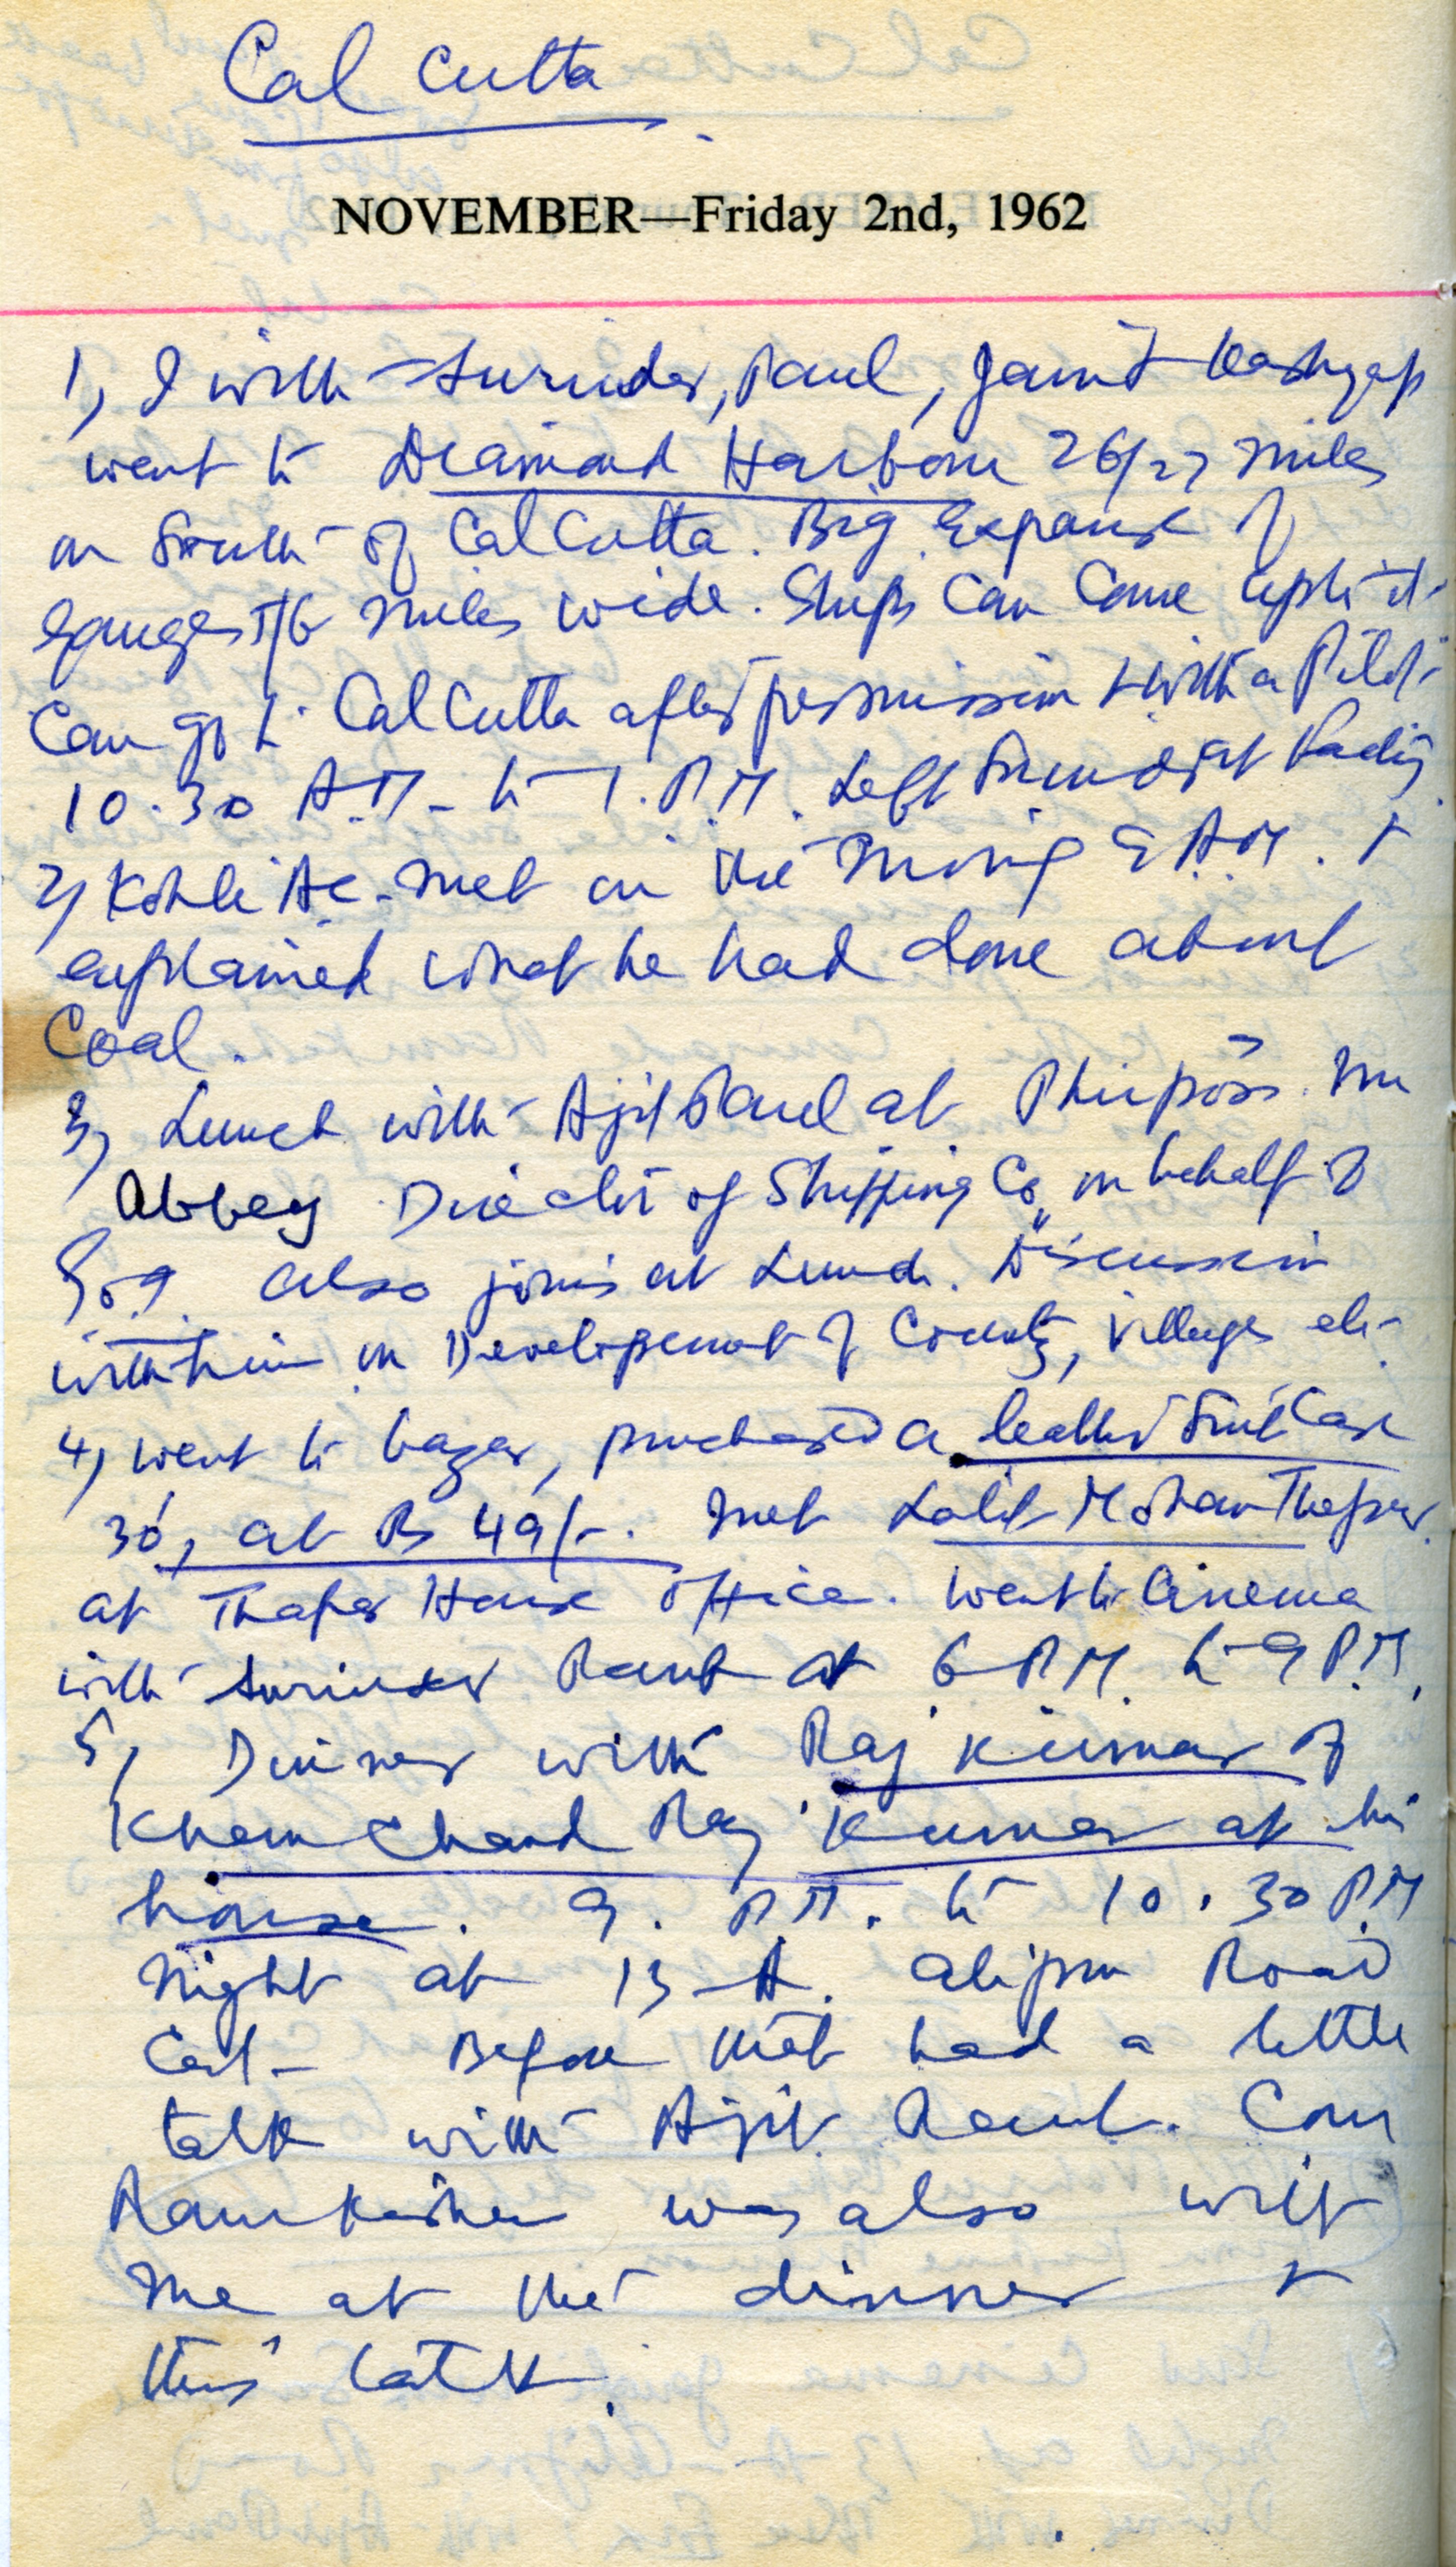 Calcutta
NOVEMBER—Friday 2nd, 1962
1, I with Surinder, Paul, Kashyap
went to Diamond Harbour 26/27 miles
on South of Calcutta. Big Expanse of
Ganges 5/6 miles wide. Ships can come upto it.
Can go to Calcutta after permission & with a Pilot.
10.30 A.M. to 1. P.M. Left
2, Kohli Ac. met in the morning 9 A.M. &
explained what he had done about
Coal.
3, Lunch with Ajit Paul at Phirpos. Mr
Abbey Director of Shipping Co, on behalf of
G.o.I. also joins at Lunch. Discussion
with him on Development of Country, Villages etc.
4, went to bazar, purchased a leather Suit Case
30", at Rs 49/-. Met Lalit Mohan Thapar
at Thapar House office. Went to Cinema
with Surinder Paul at 6 P.M. to 9 P.M.
5, Dinner with Raj Kumar of
Khem Chand Raj Kumar at his
house. 9. P.M. to 10.30 P.M
Night at 13-A. Alipur Road
Cal- Before that had a little
talk with Ajit Paul. Com
Ram Kishen was also with
me at the dinner &
this talk.